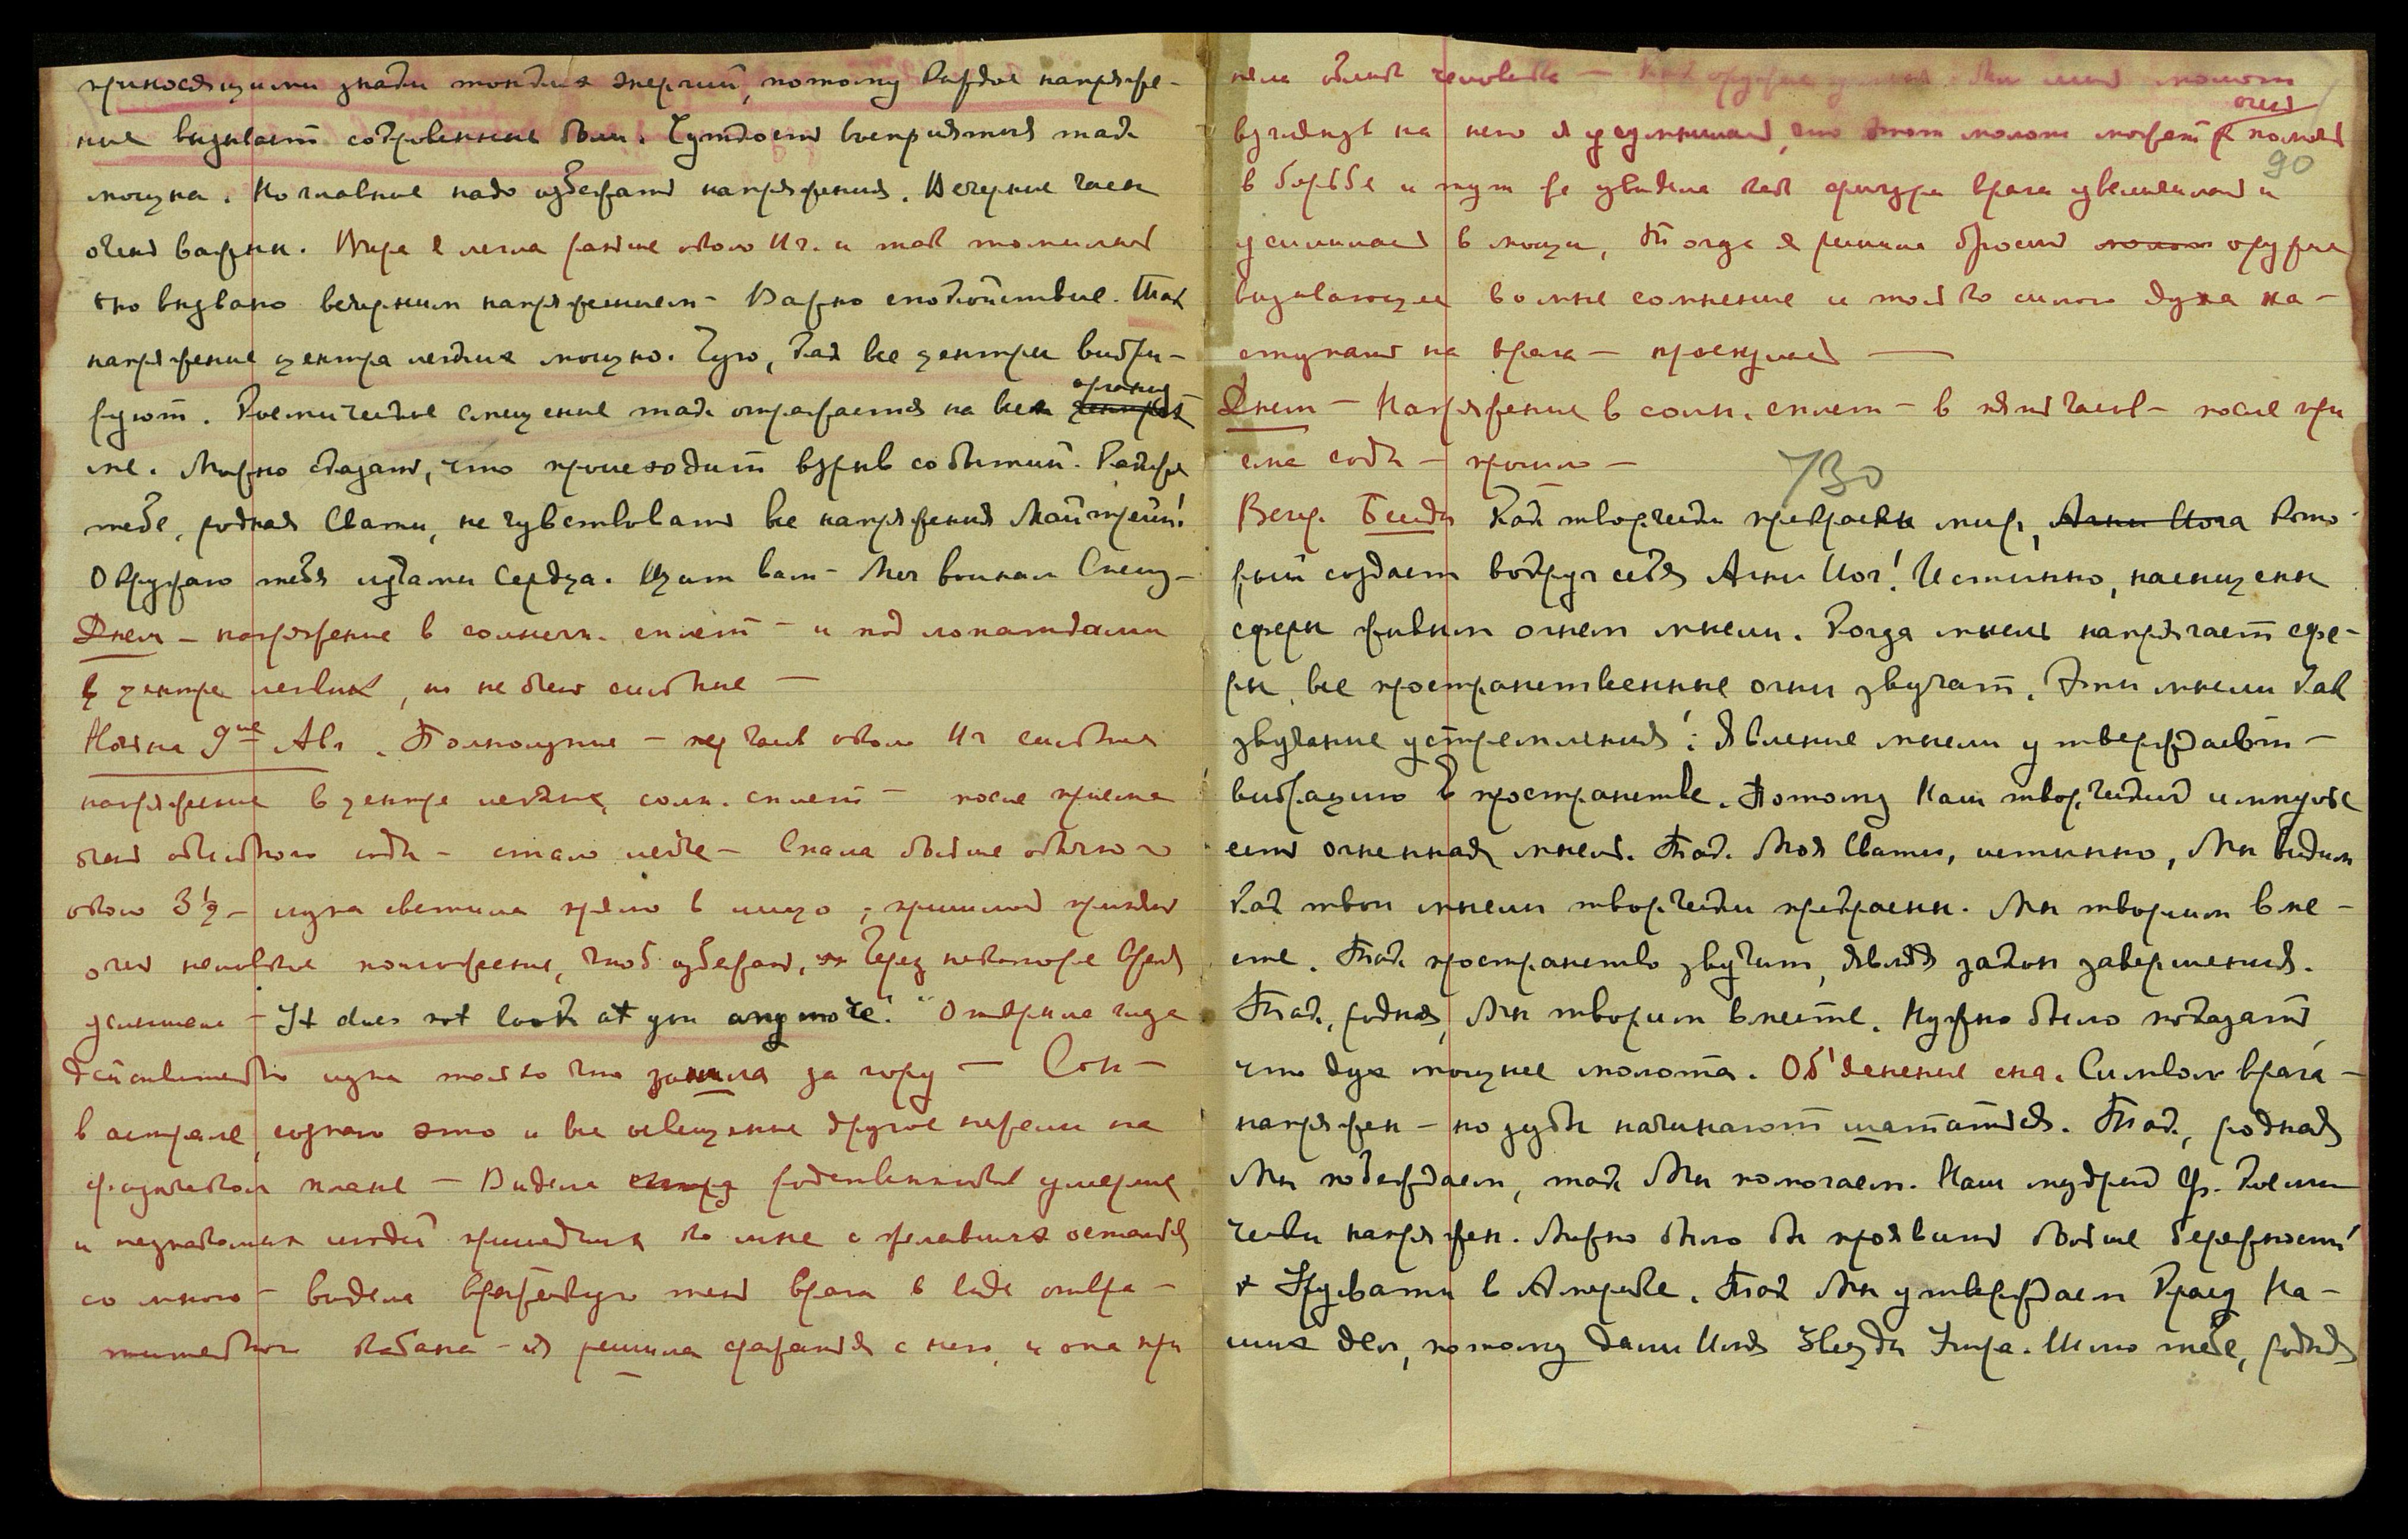 приносящими знаки тонких энергий, потому каждое напряже-
ние вызывает сокровенные боли. Чуткость восприятия так
мощна. Но главное надо избежать напряжения. Вечерние часы
очень важны. Вчера я легла раньше около 11 ч. и так томилась
это вызвано вечерним напряжением – Важно спокойствие. Так
напряжение центра легких мощно. Чую, как все центры вибри-
руют. Космическое смещение так отражается на всем организ
ме. Можно сказать, что происходит взрыв событий. Как же
тебе, родная Свати, не чувствовать все напряжения Майтрейи!
Окружаю тебя лучами Сердца. Щит вам – Меч воинам Спешу –
Днем – напряжение в солнечн. сплет – и под лопатками
в центре легких, но не очень сильное –
Ночь на 9ое Авг. Полнолуние – часов около 11 ч сильное
напряжение в центре легких, солн. сплет – после приема
соды – стало легче – Спала больше обычного
около 3½ – луна светила прямо в лицо, пришлось принять
очень неловкое положение, чтоб избежать, Через некоторое время
услышала – "It does not look at you any more." Открыла глаза
действительно луна только что зашла за гору – Сон –
в астрале, сознаю это и все освещение другое нежели на
физическом плане – Видела родственников умерших
и незнакомых людей пришедших ко мне и желавших остаться
со мною – видела враждебную тень врага в виде отвра –
тительного кабана – я решила сражаться с нею, и она при
няла облик человека – Как оружие у меня был молот
взглянув на него я усумнилась, что этот молот может очень помочь
90
в борьбе и тут же увидела как фигура врага увеличилась и
усилилась в мощи, Тогда я решила бросить молот оружие
вызывающее во мне сомнение и только силою духа на –
ступать на врага – проснулась –
Днем – Напряжение в солн. сплет – в пять часов – после при
ема соды – прошло –
730
Вечер. Беседа Как творчески прекрасен мир, Агни Йога кото –
рый создает вокруг себя Агни Йог! Истинно, насыщены
сферы живым огнем мысли. Когда мысль напрягает сфе –
ры, все пространственные огни звучат. Эти мысли как
звучание устремления! Явление мысли утверждает –
вибрацию в пространстве. Потому Наш творческий импульс
есть огненная мысль. Так. Моя Свати, истинно, Мы видим
как твои мысли творчески прекрасны. Мы творим вме –
сте. Так пространство звучит, являя закон завершения.
Так, родная, Мы творим вместе. Нужно было показать,
что дух мощнее молота. Об'яснение сна. Символ врага –
напряжен – но зубы начинают шататься. Так, родная
Мы побеждаем, так Мы помогаем. Наш мудрый Ф. Косми
чески напряжен. Можно было бы проявить больше бережности
к Друзьям в Америке. Так Мы утверждаем Краеу На –
ших дел, потому дали Имя Звезды Утра. Шлю тебе, родная